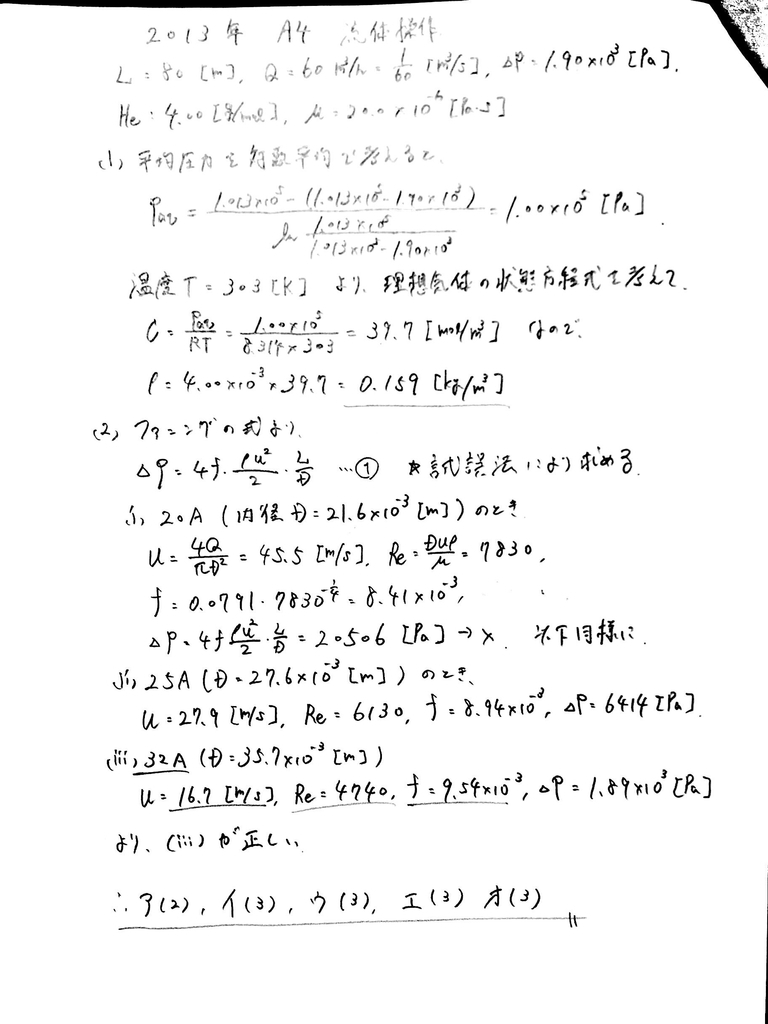 2013年 A4 流体操作
L = 80 [m], Q = 60 m³/h = 1/60 [m³/s], ΔP = 1.90×10³ [Pa].
He : 4.00 [g/mol], μ = 20.0×10⁻⁶ [Pa·s]
(1) 平均圧力を対数平均で考えると、
Pav = (1.013×10⁵ - (1.013×10⁵ - 1.90×10³)) / (ln (1.013×10⁵ / (1.013×10⁵ - 1.90×10³))) = 1.00×10⁵ [Pa].
温度 T = 303 [K] より、理想気体の状態方程式を考えて、
C = Pav/RT = (1.00×10⁵)/(8.314×303) = 39.7 [mol/m³] なので、
ρ = 4.00×10⁻³×39.7 = 0.159 [kg/m³]
(2) ファニングの式より、
ΔP = 4f · ρu²/2 · L/D …① ★試誤法により求める.
i) 20A (内径 D = 21.6×10⁻³ [m]) のとき
u = 4Q/πD² = 45.5 [m/s], Re = Duρ/μ = 7830,
f = 0.0791 · 7830^(-1/4) = 8.41×10⁻³,
ΔP = 4f ρu²/2 · L/D = 20506 [Pa] → × . 以下同様に.
ii) 25A (D = 27.6×10⁻³ [m]) のとき、
u = 27.9 [m/s], Re = 6130, f = 8.94×10⁻³, ΔP = 6414 [Pa].
(iii) 32A (D = 35.7×10⁻³ [m])
u = 16.7 [m/s], Re = 4740, f = 9.54×10⁻³, ΔP = 1.89×10³ [Pa]
より、(iii) が正しい
∴ ア(2), イ(3), ウ(3), エ(3) オ(3)